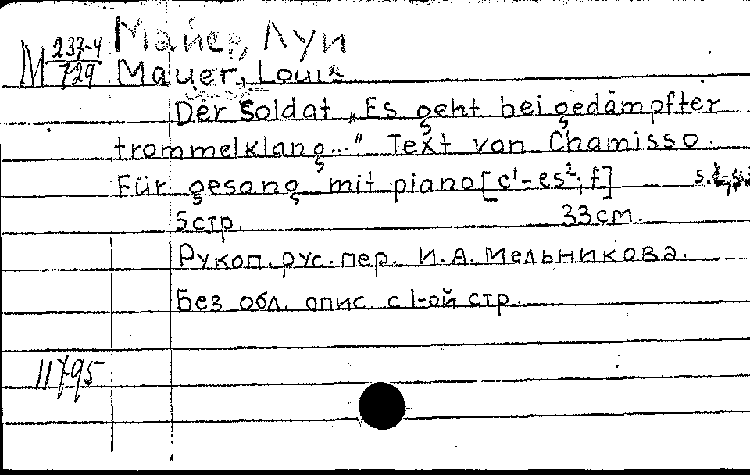 Майер, Луи
М 237-4/729 Mauer, Louis
Der Soldat „Es geht bei gedämpfter
trommelklang..." Text von Chamisso.
Für gesang mit piano [c¹-es²; f]
5 стр. 33 см.
Рукоп. рус. пер. И.А. Мельникова.
Без обл. опис. с 1-ой стр.
11795